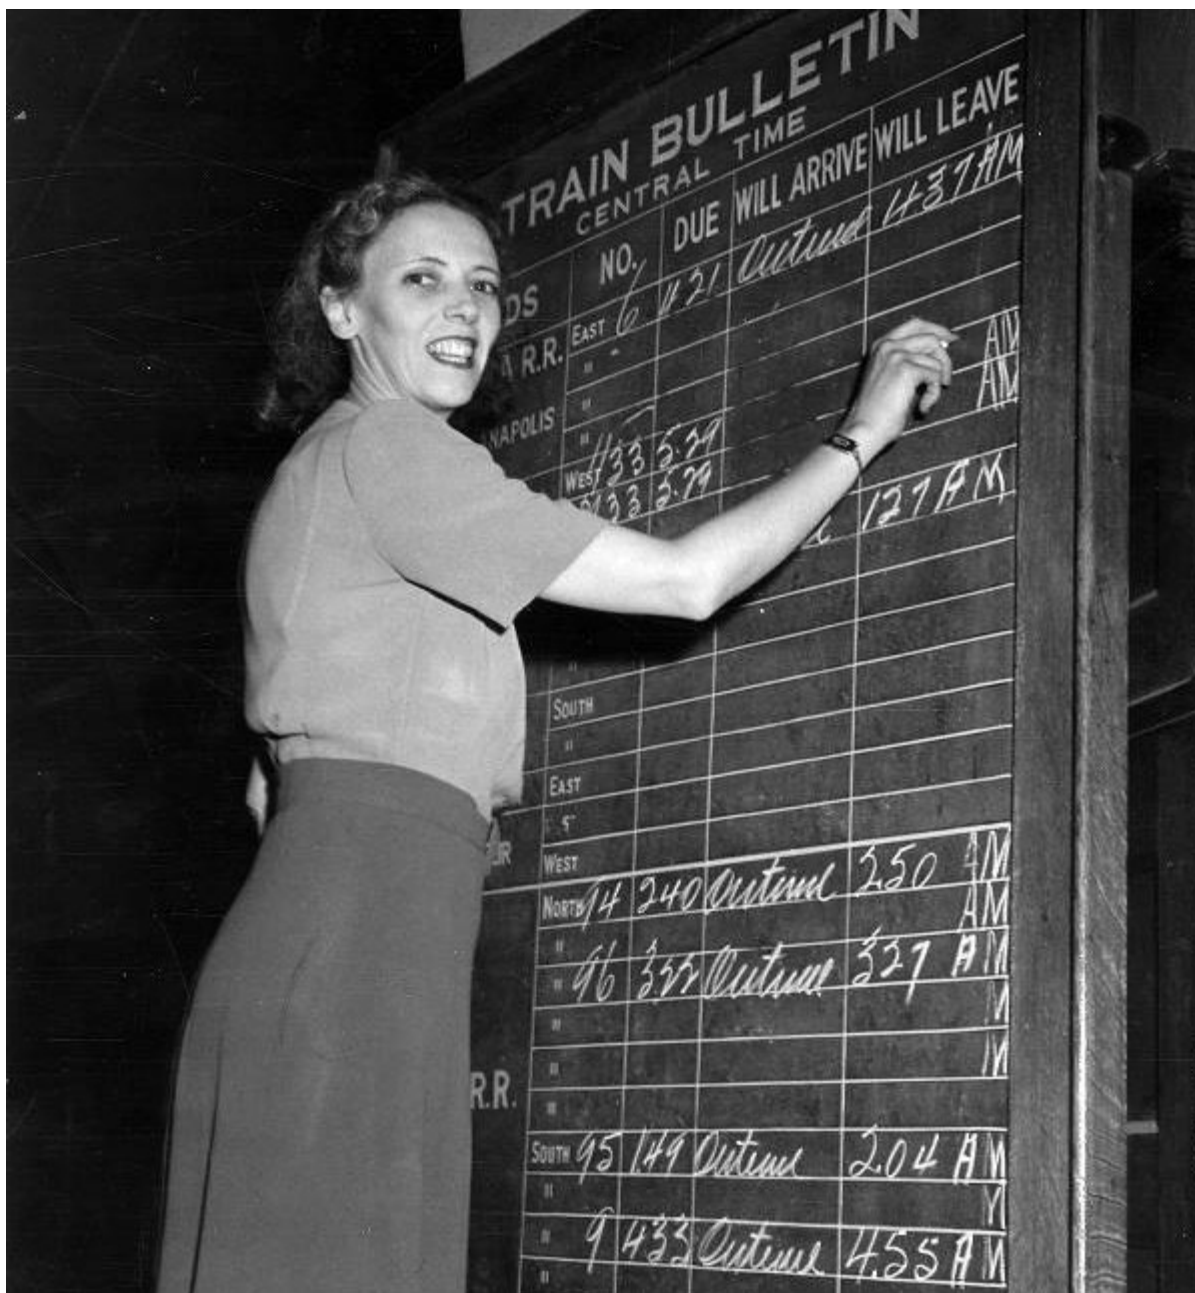 TRAIN BULLETIN
CENTRAL TIME
DS NO. DUE WILL ARRIVE WILL LEAVE
EAST 6 1121 Ontime 1137 AM
R.R. "
"
NAPOLIS "
WEST 33 5.29 AM
33 5.29 AM
127 AM
"
SOUTH
"
EAST
"
WEST
NORTH 94 240 Ontime 250 AM
" AM
" 96 322 Ontime 327 AM
" M
" M
R.R. "
SOUTH 95 149 Ontime 2.04 AM
" M
" 9 433 Ontime 4.55 AM
"